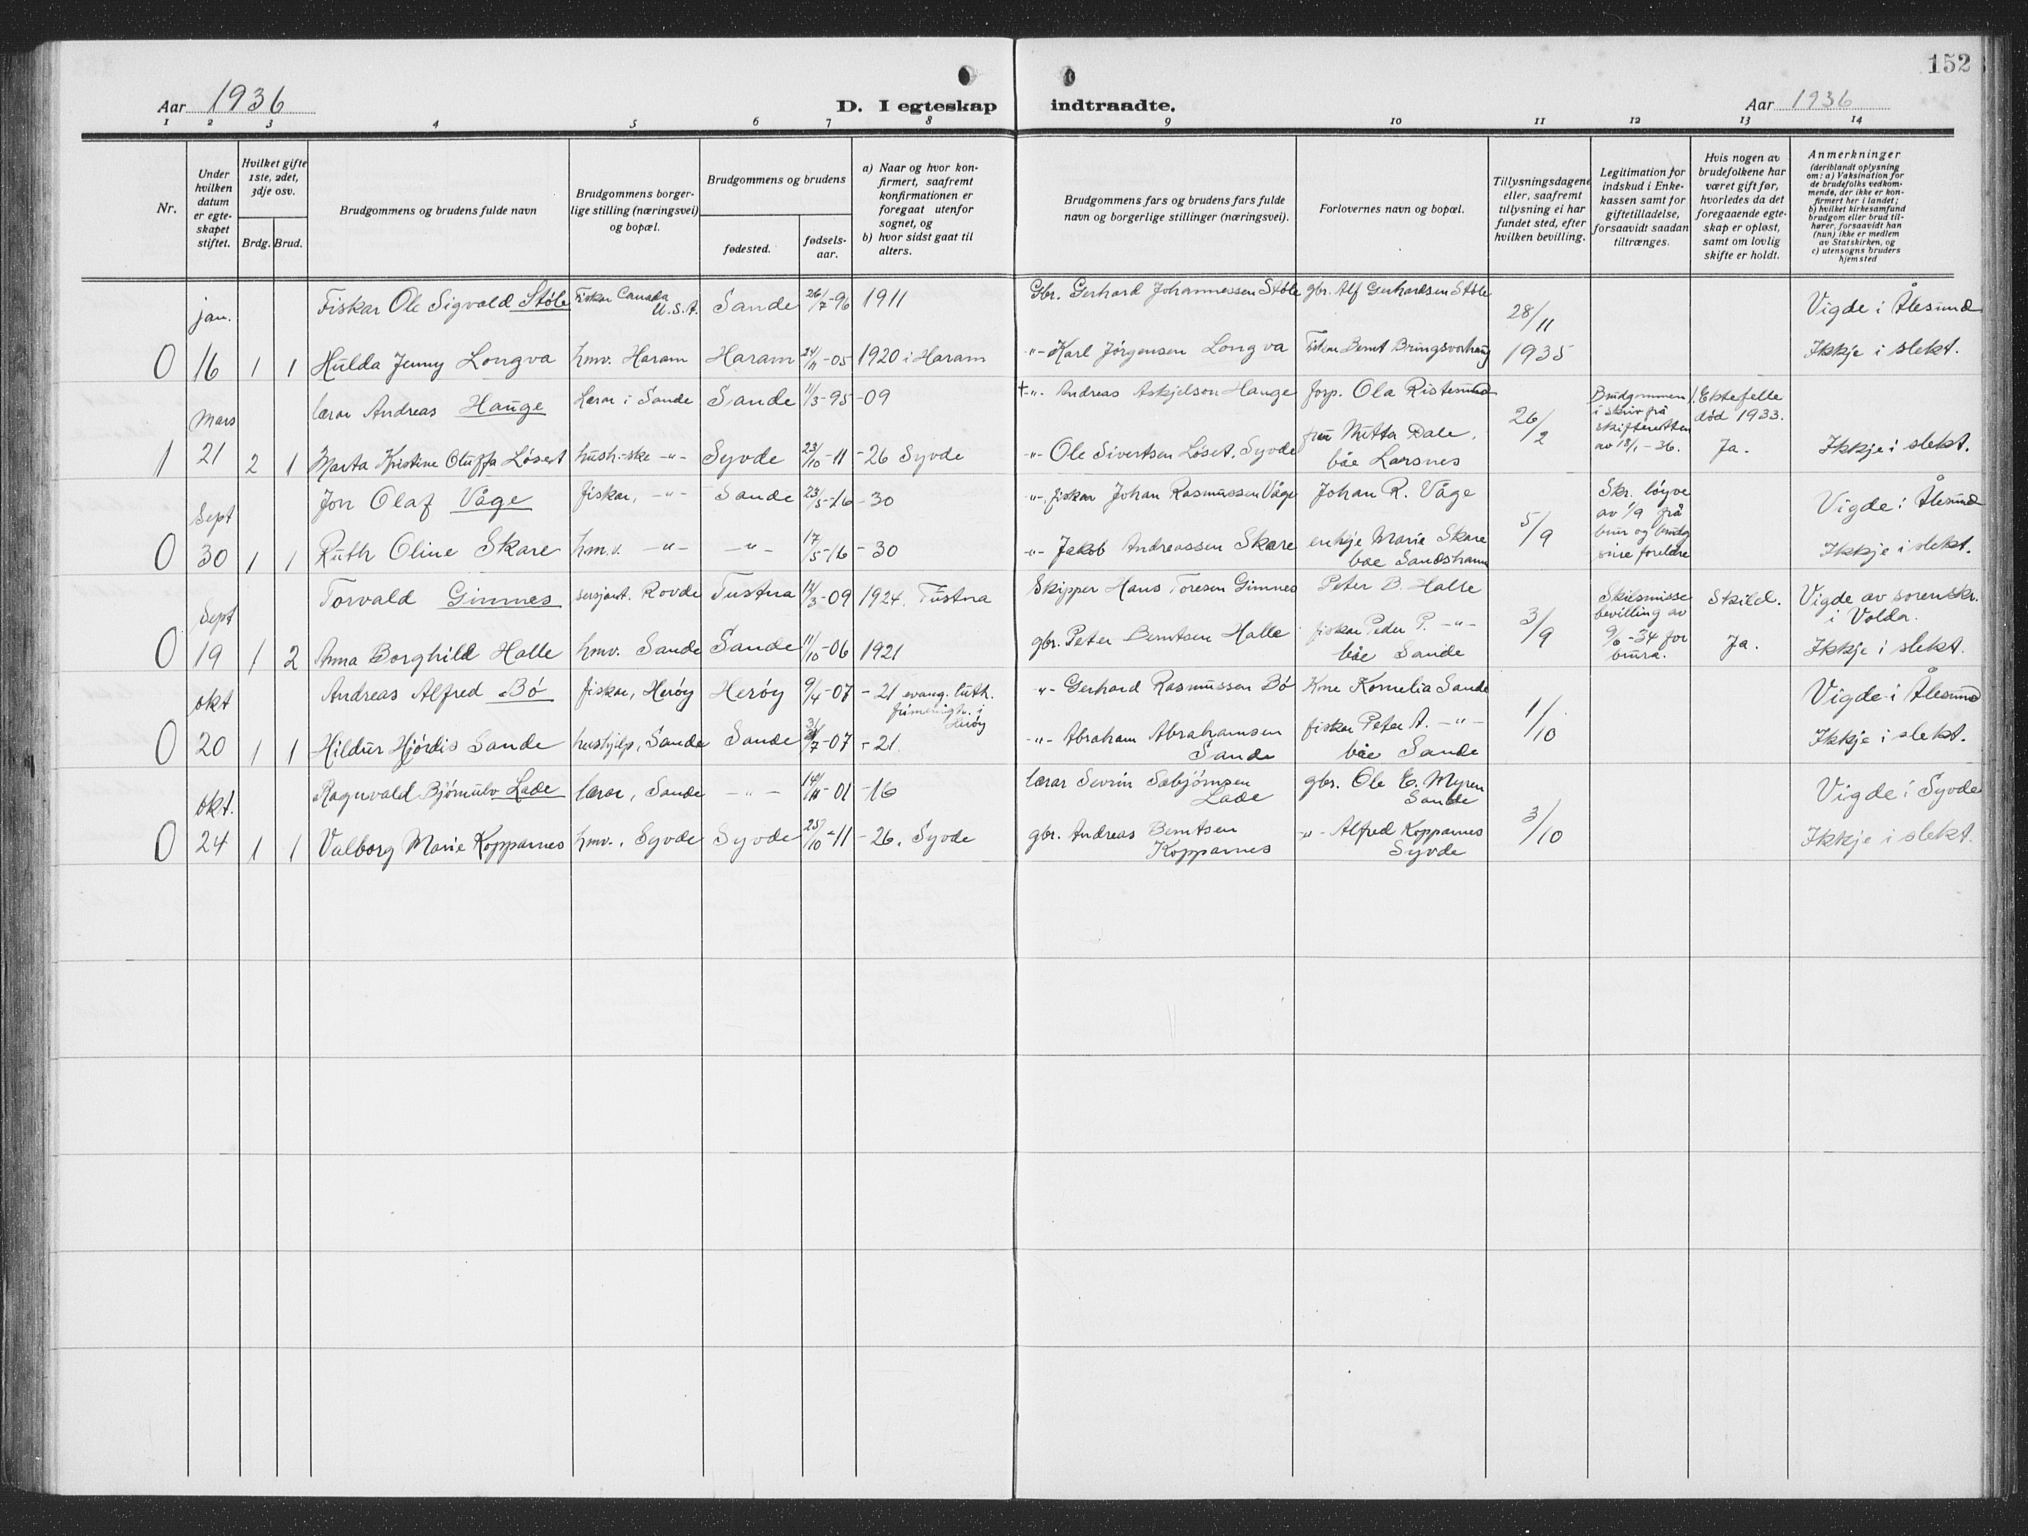 152
Aar 1936
D. I egteskap indtraadte.
Aar 1936
1 2 3 4 5 6 7 8 9 10 11 12 13 14
Nr.
Under hvilken datum er egteskapet stiftet.
Hvilket gifte 1ste, 2det, 3dje osv.
Brdg. Brud.
Brudgommens og brudens fulde navn
Brudgommens borgerlige stilling (næringsvei) og bopæl.
Brudgommens og brudens
fødested.
fødselsaar.
a) Naar og hvor konfirmert, saafremt konfirmationen er foregaat utenfor sognet, og
b) hvor sidst gaat til alters.
Brudgommens fars og brudens fars fulde navn og borgerlige stillinger (næringsvei).
Forlovernes navn og bopæl.
Tillysningsdagene eller, saafremt tillysning ei har fundet sted, efter hvilken bevilling.
Legitimation for indskud i Enkekassen samt for giftetilladelse, forsaavidt saadan tiltrænges.
Hvis nogen av brudefolkene har været gift før, hvorledes da det foregaaende egteskap er opløst, samt om lovlig skifte er holdt.
Anmerkninger
(deriblandt oplysning om: a) Vaksination for de brudefolks vedkommende, der ikke er konfirmert her i landet; b) hvilket kirkesamfund brudgom eller brud tilhører, forsaavidt han (hun) ikke er medlem av Statskirken, og c) utensogns bruders hjemsted
jan. Fiskar Ole Sigvald Støle Fiskar Canada U.S.A. Sande 26/7-96 1911 Gbr. Gerhard Johannessen Støle gbr. Alf Gerhardsen Støle 28/11 Vigde i Ålesund
0 16 1 1 Hulda Jenny Longva hmv. Haram Haram 24/11-05 1920 i Haram -"- Karl Jørgensen Longva Fiskar Bernt 1935 Ikkje i slekt.
Mars lærar Andreas Hauge Lærar i Sande Sande 11/3-95 -09 † -"- Andreas Askjelson Hauge forp. Ola Ristesund 26/2 Brudgommen i skriv frå skifteretten av 18/1-36. 1. Ektefelle død 1933.
1 21 2 1 Marta Kristine Oluffa Løset hush.-ske -"- Syvde 23/10-11 -26 Syvde -"- Ole Sivertsen Løset, Syvde fru Mitta Dale, båe Larsnes Ja. Ikkje i slekt.
Sept Jon Olaf Våge fiskar, -"- Sande 23/5-16 -30 -"-, fiskar Johan Rasmussen Våge Johan R. Våge 5/9 Skr. løyve av 1/9 frå brur og brudg sine foreldre Vigde i Ålesund
0 30 1 1 Ruth Oline Skare hmv. -"- -"- 17/5-16 -30 -"- Jakob Andreassen Skare enkje Marie Skare båe Sandshamn Ikkje i slekt.
Sept Torvald Ginnes sersjant. Rovde Tustna 12/3-09 1924. Tustna Skipper Hans Toresen Gimnes Peter B. Halse 3/9 Skilsmisse bevilling av 9/6-34 for brura. Skild. Vigde av sorenskr. i Volda.
0 19 1 2 Anna Borghild Halle hmv. Sande Sande 11/10-06 1921 gbr. Peter Berntsen Halle fiskar Peder P. -"- båe Sande Ja. Ikkje i slekt.
okt Andreas Alfred Bö fiskar, Herøy Herøy 9/4-07 -21 evang. luth. frimenigh. i Herøy -"- Gerhard Rasmussen Bö Kne Kornelia Sande 1/10 Vigde i Ålesund
0 20 1 1 Hildur Hjördis Sande hushjelp, Sande Sande /7-07 -21 -"- Abraham Abrahamsen Sande fiskar Peter A. -"- båe Sande Ikkje i slekt.
okt. Ragnvald Bjørnulv Lade lærar, Sande -"- 14/11-01 -16 lærar Sevrin Sæbjørnsen Lade gbr. Ole E. Myren Sande 3/10 Vigde i Syvde
0 24 1 1 Valborg Marie Kopparnes hmv., Syvde Syvde 25/10-11 -26, Syvde gbr. Andreas Berntsen Kopparnes -"- Alfred Kopparnes Syvde Ikkje i slekt.